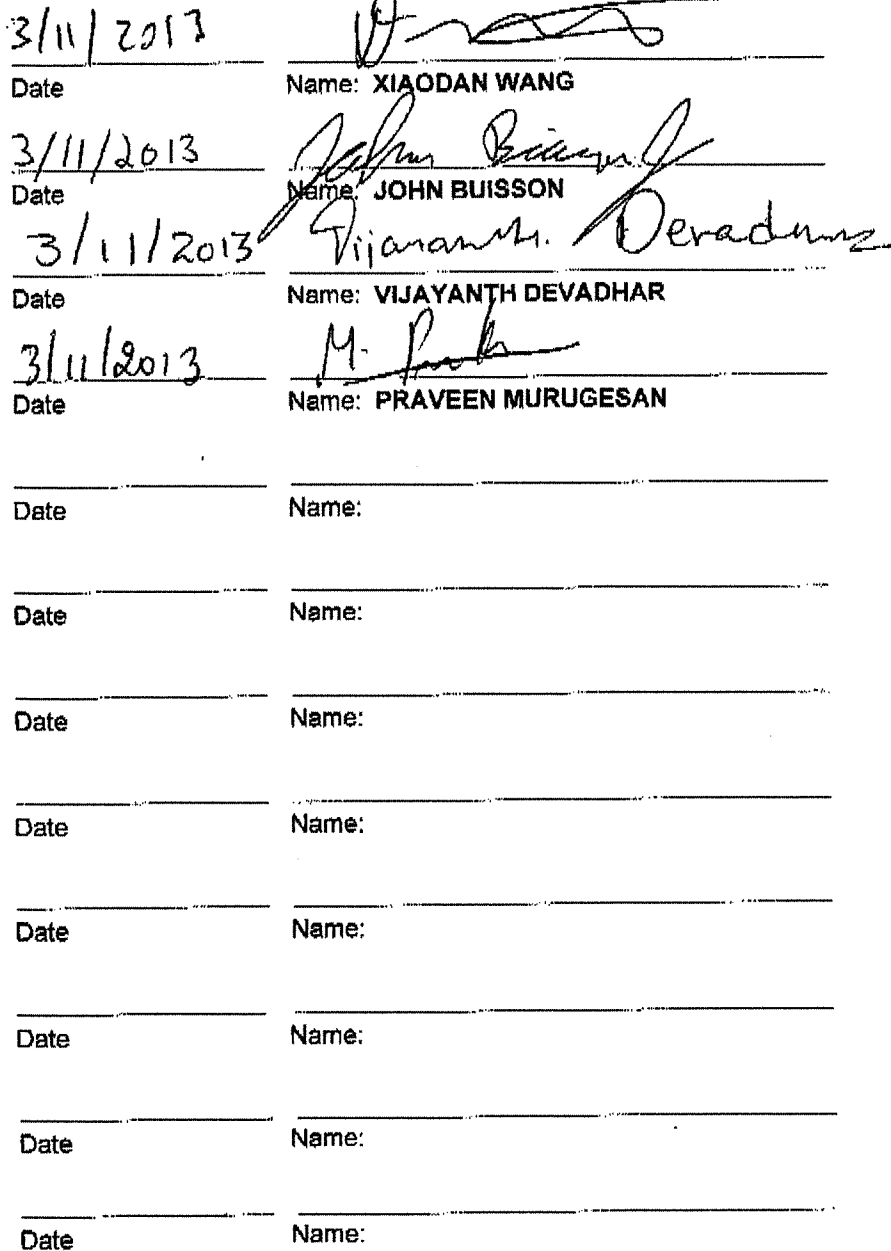 3/11/2013
Date Name: XIAODAN WANG
3/11/2013 John Buisson
Date Name: JOHN BUISSON
3/11/2013 Vijayanth Devadhar
Date Name: VIJAYANTH DEVADHAR
3/11/2013 M.
Date Name: PRAVEEN MURUGESAN
Date Name:
Date Name:
Date Name:
Date Name:
Date Name:
Date Name:
Date Name:
Date Name: